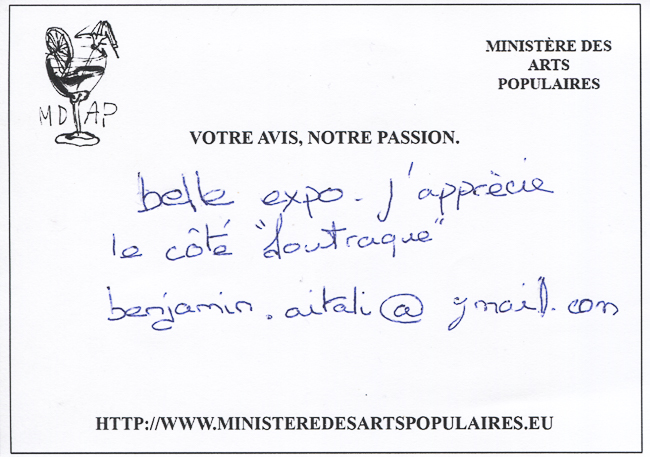 MINISTÈRE DES
ARTS
POPULAIRES
MD AP
VOTRE AVIS, NOTRE PASSION.
belle expo. j'apprècie
le côté "foutraque"
benjamin.aitali@gmail.com
HTTP://WWW.MINISTEREDESARTSPOPULAIRES.EU